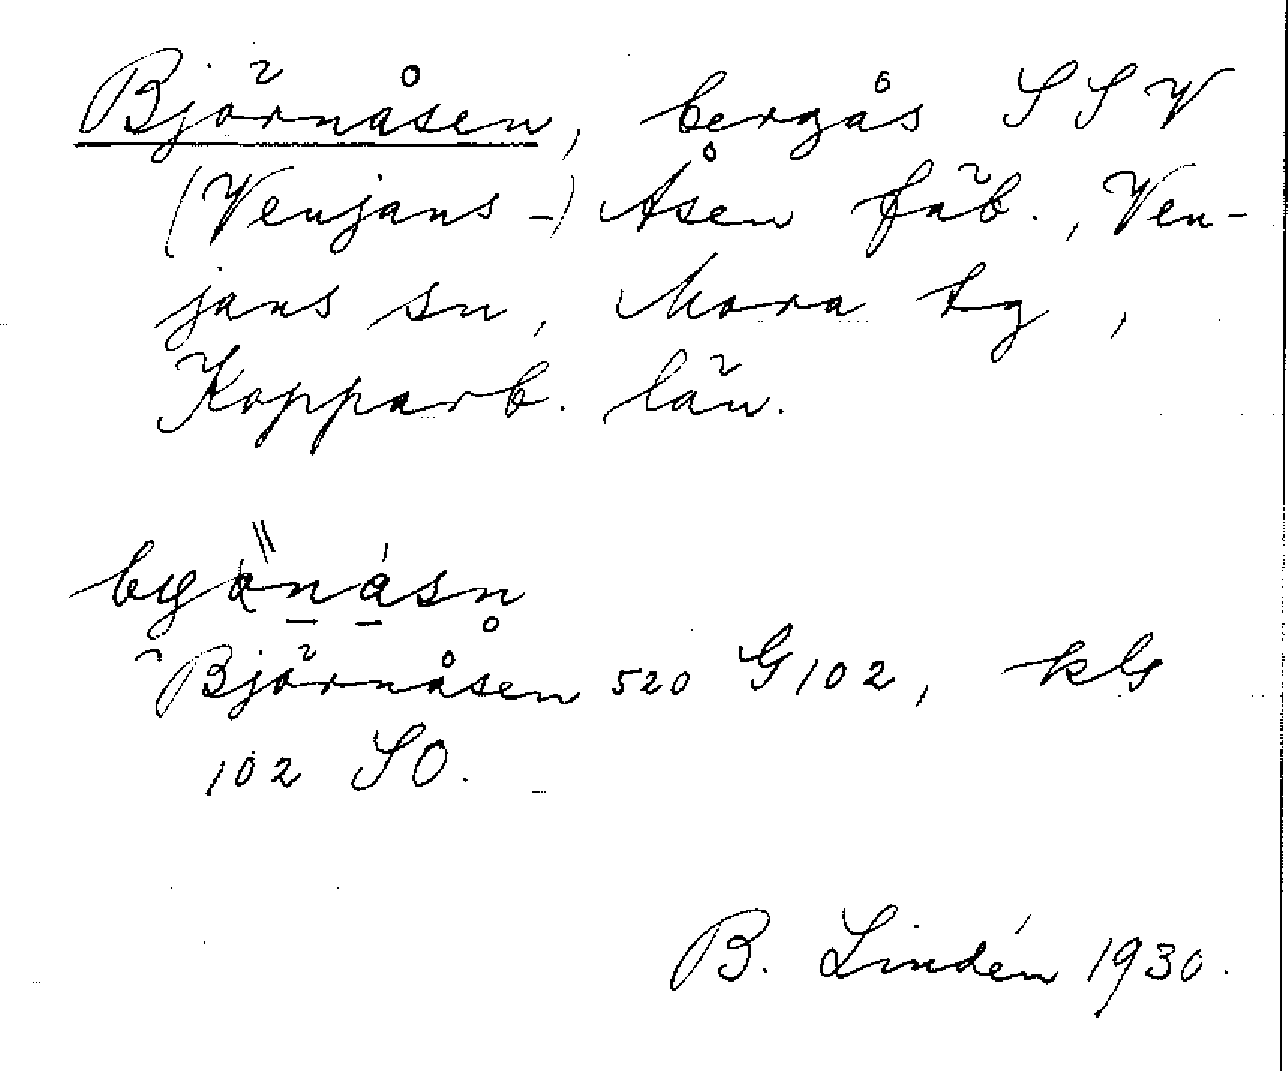 Björnåsen, bergås SSV
(Venjans-) Åsen fäb., Ven-
jans sn, Mora tg,
Kopparb. län.
Björnåsen 520 G102, kG
102 SO.
B. Lindén 1930.